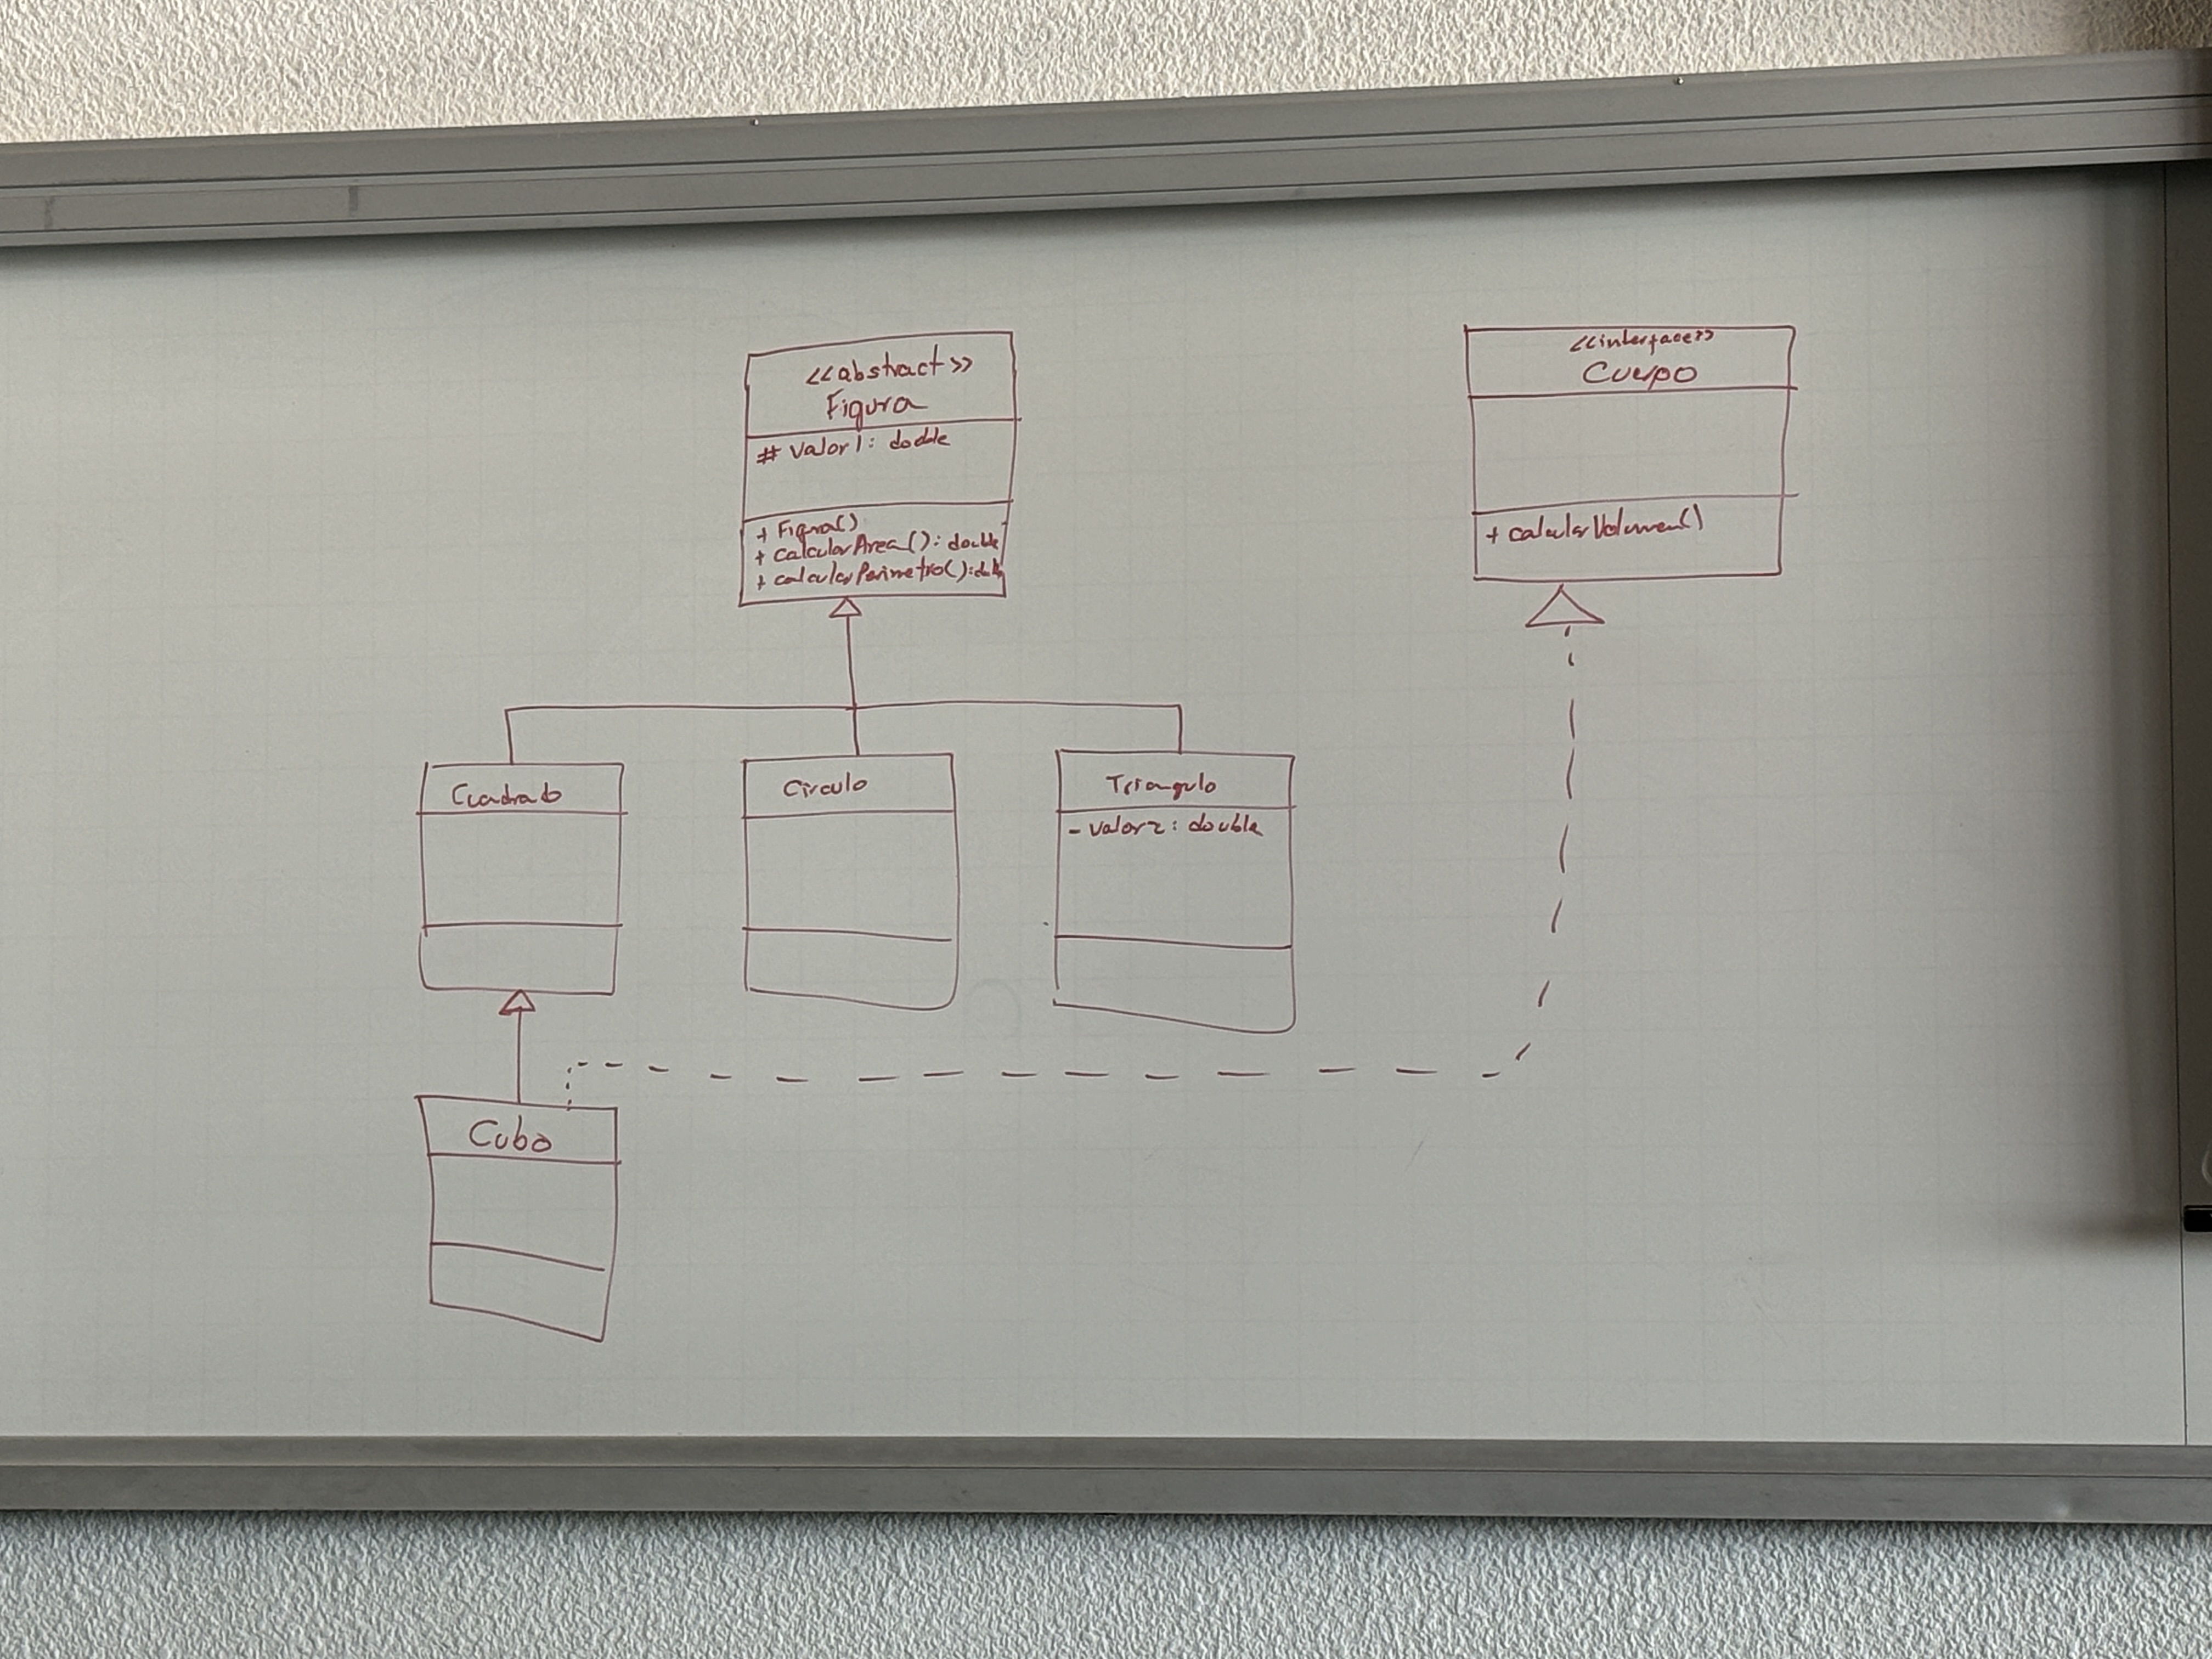 <<abstract>>
Figura
# valor1: double
+ Figura()
+ calcularArea(): double
+ calcularPerimetro():
<<interface>>
Cuerpo
+ calcularVolumen()
Cuadrado
Circulo
Triangulo
- valor2: double
Cubo